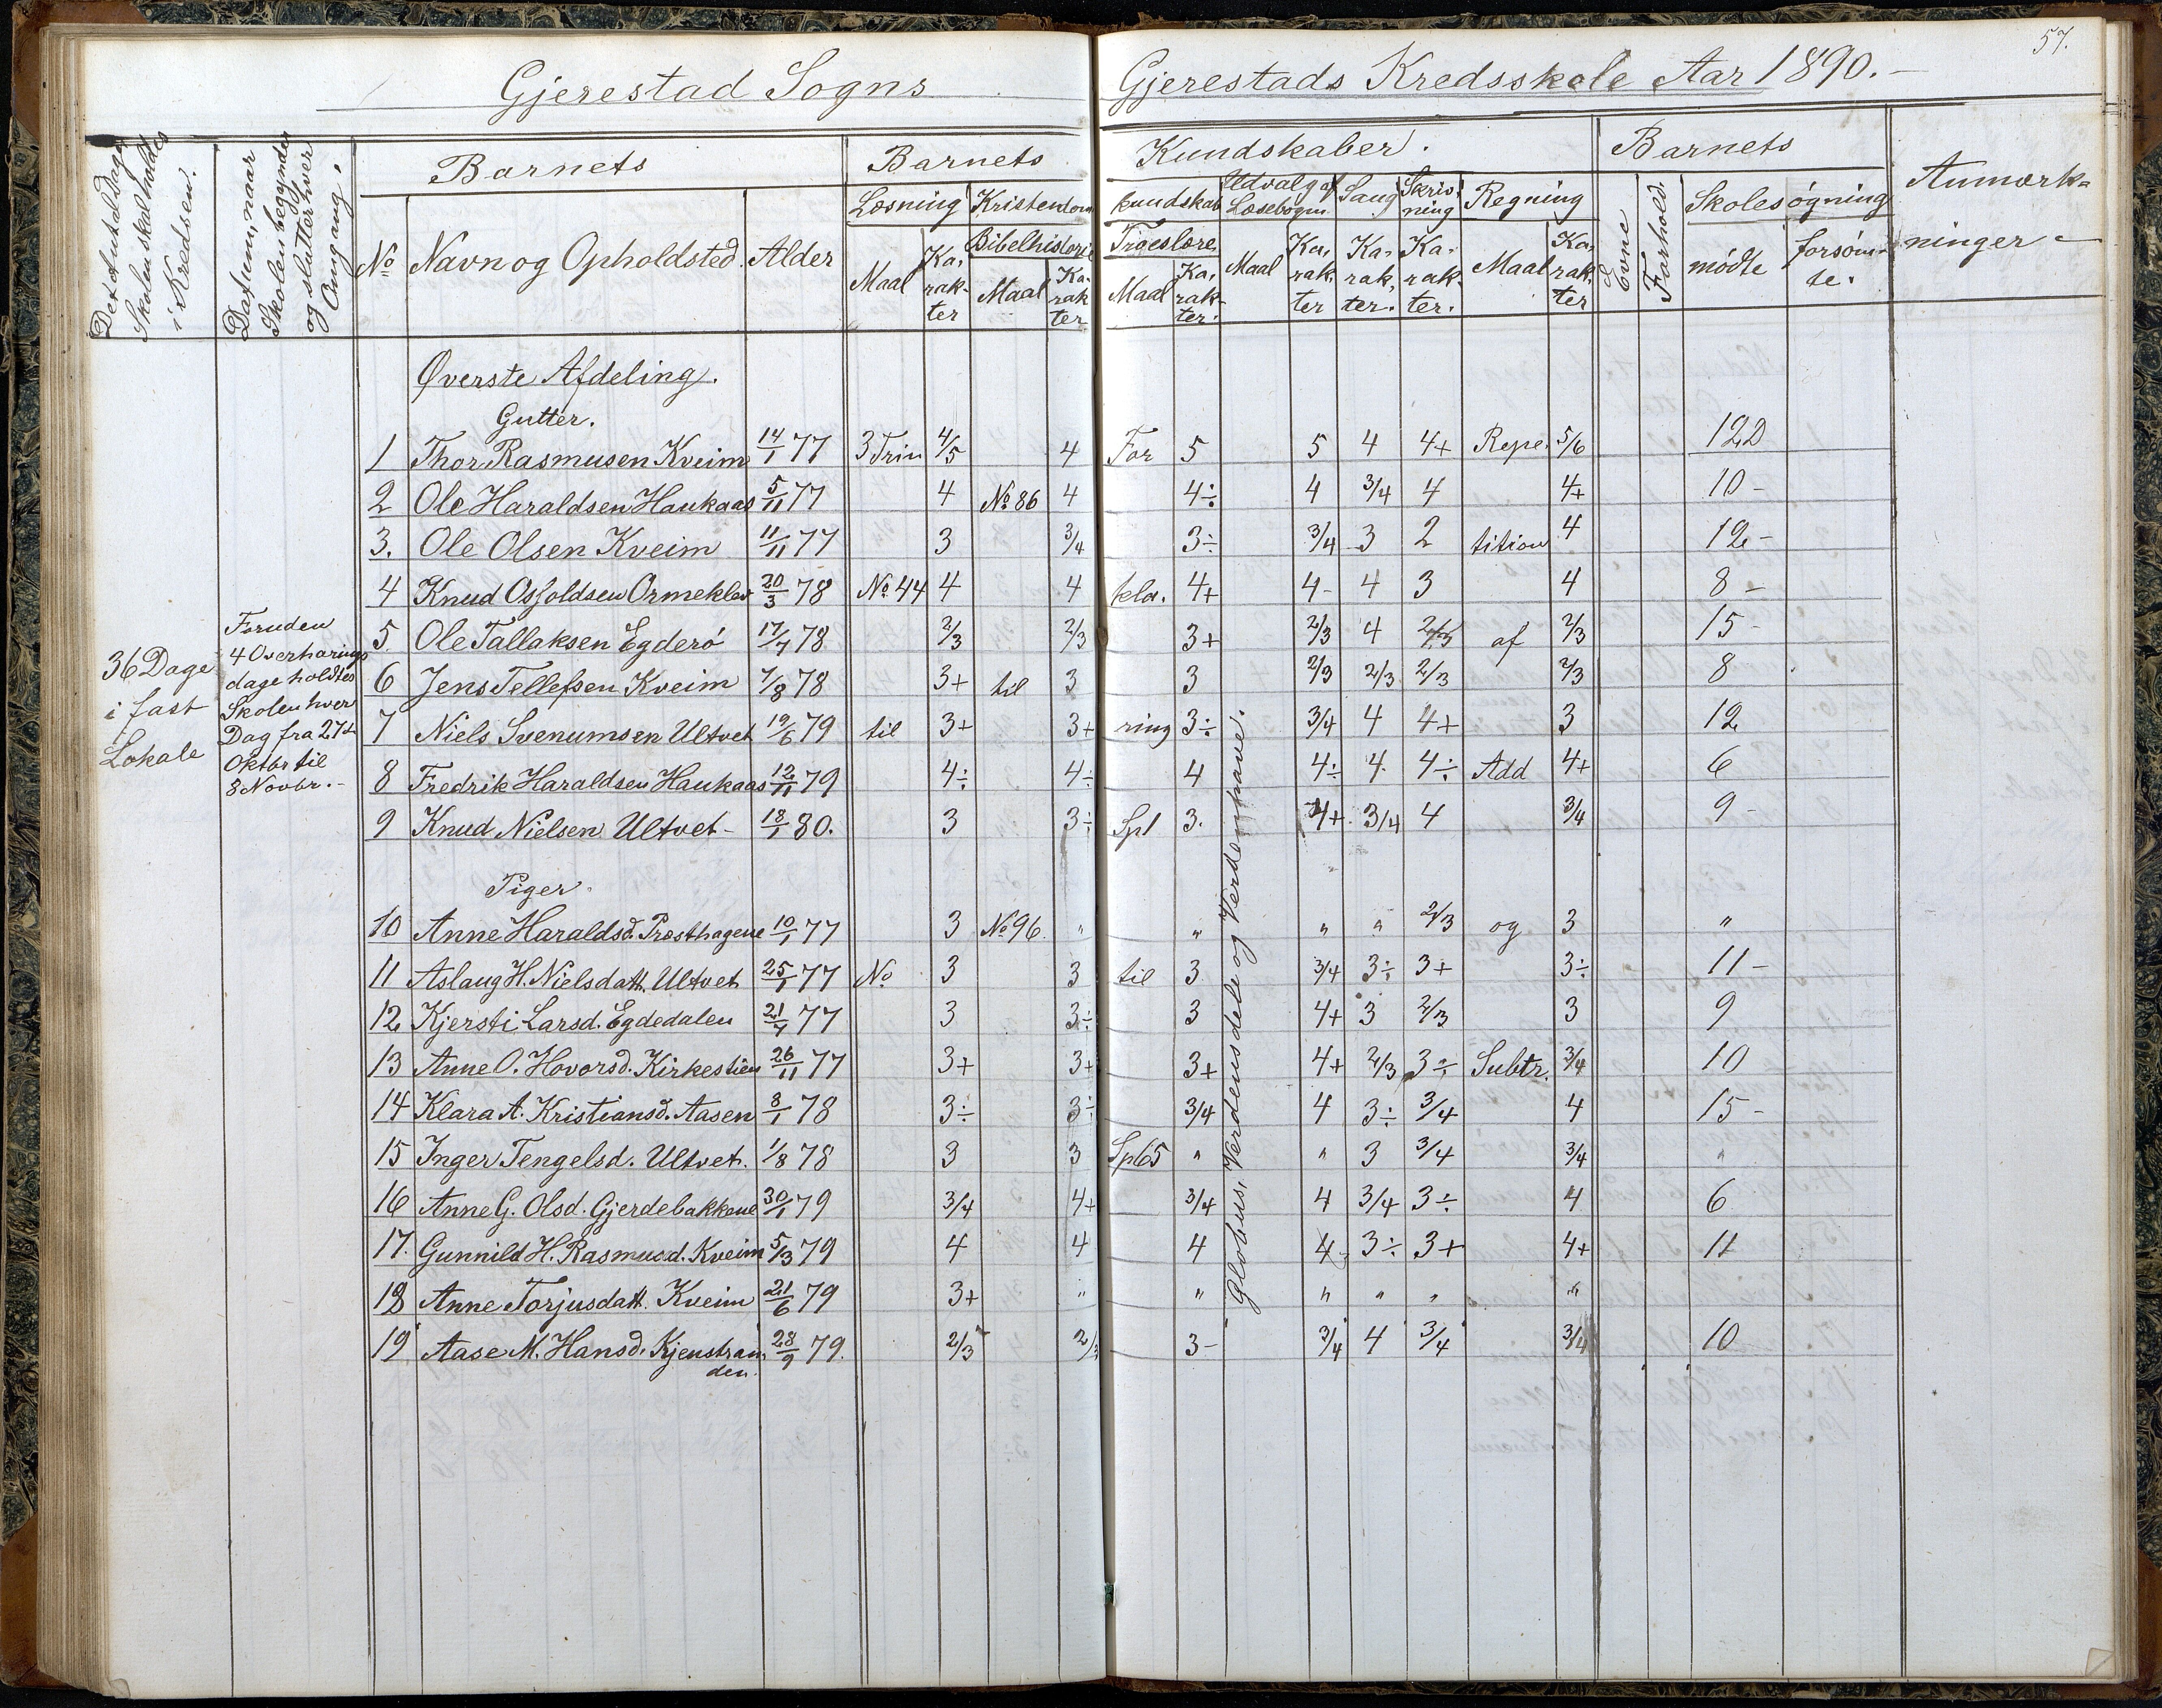 57.
Gjerestad Sogns Gjerestads Kredsskole Aar 1890.-
Det Antal Dage Skolen skal holdes i Kredsen.
Datum, naar Skolen begynder og slutter hver Omgang.
Barnets Barnets Kundskaber. Barnets Anmærk-
ninger -
Læsning Kristendom kundskab Udvalg af Læsebogen Sang Skrivning Regning Evne Forhold. Skolesøgning
No Navn og Opholdsted. Alder Bibelhistorie Troeslære mødte forsømte.
Maal Karakter Maal Karakter Maal Karakter. Maal Karakter Karakter. Karakter. Maal Karakter
Øverste Afdeling.
Gutter.
1 Thor Rasmusen Kveim 14/1 77 3 Trin 4/5 4 For 5 5 4 4+ Repe. 5/6 12 D
2 Ole Haraldsen Haukaas 5/11 77 4 No 86 4 4÷ 4 3/4 4 4+ 10 -
3. Ole Olsen Kveim 11/11 77 3 3/4 3÷ 3/4 3 2 tition 4 12 -
4 Knud Osfoldsen Ormeklev 20/3 78 No 44 4 4 kla. 4+ 4- 4 3 4 8 -
5. Ole Tallaksen Egderö 17/7 78 2/3 2/3 3+ 2/3 4 2/3 af 2/3 15 -
6 Jens Tellefsen Kveim 7/8 78 3+ til 3 3 2/3 2/3 2/3 2/3 8
7 Niels Svenumsen Ultvet 19/6 79 til 3+ 3+ ring 3÷ 3/4 4 4+ 3 12
8 Fredrik Haraldsen Haukaas 12/11 79 4÷ 4÷ 4 4÷ 4 4÷ Add 4+ 6
9 Knud Nielsen Ultvet - 18/1 80. 3 3÷ Spl 3. 4+ 3/4 4 3/4 9 -
36 Dage
i fast
Lokale
Foruden
4 Overhørings
dage holdtes
Skolen hver
Dag fra 27de
Oktbr til
8 Novbr. -
Globus, Verdensdele og Verdenshave.
Piger.
10 Anne Haraldsd. Præsthagene 10/1 77 3 No 96. " " " " 2/3 og 3 "
11 Aslaug H. Nielsdatt. Ultvet 25/1 77 No 3 3 til 3 3/4 3÷ 3+ 3÷ 11 -
12 Kjersti Larsd. Egdedalen 21/7 77 3 3÷ 3 4+ 3 2/3 3 9
13 Anne O. Hovorsd. Kirkestien 26/11 77 3+ 3+ 3+ 4+ 2/3 3÷ Subtr. 3/4 10
14 Klara A. Kristiansd. Aasen 8/1 78 3÷ 3÷ 3/4 4 3÷ 3/4 4 15 -
15 Inger Tengelsd. Ultvet. 1/8 78 3 3 Spl 65 " " 3 3/4 3/4 "
16 Anne G. Olsd. Gjerdebakkene 30/1 79 3/4 4+ 3/4 4 3/4 3÷ 4 6
17. Gunnild H. Rasmusd. Kveim 5/13 79 4 4 4 4 3÷ 3+ 4+ 11
18 Anne Torjusdatt. Kveim 21/6 79 3+ " " " " " "
19 Aase M. Hansd. Kjenstran 28/9 79. 2/3 2/3 3- 3/4 4 3/4 3/4 10
den.